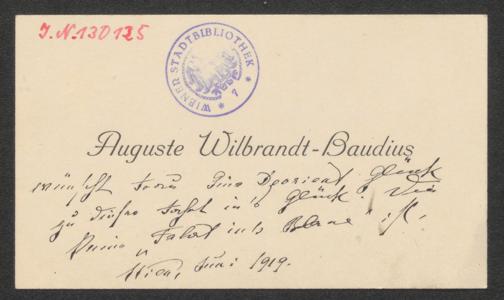 J.N. 130125
WIENER STADTBIBLIOTHEK
* 7 *
Auguste Wilbrandt-Baudius
wünscht Frau Dora Glück
zu dieser Fahrt in's Glück.
Fahrt ins Blaue" ist,
Wien, Juni 1919.